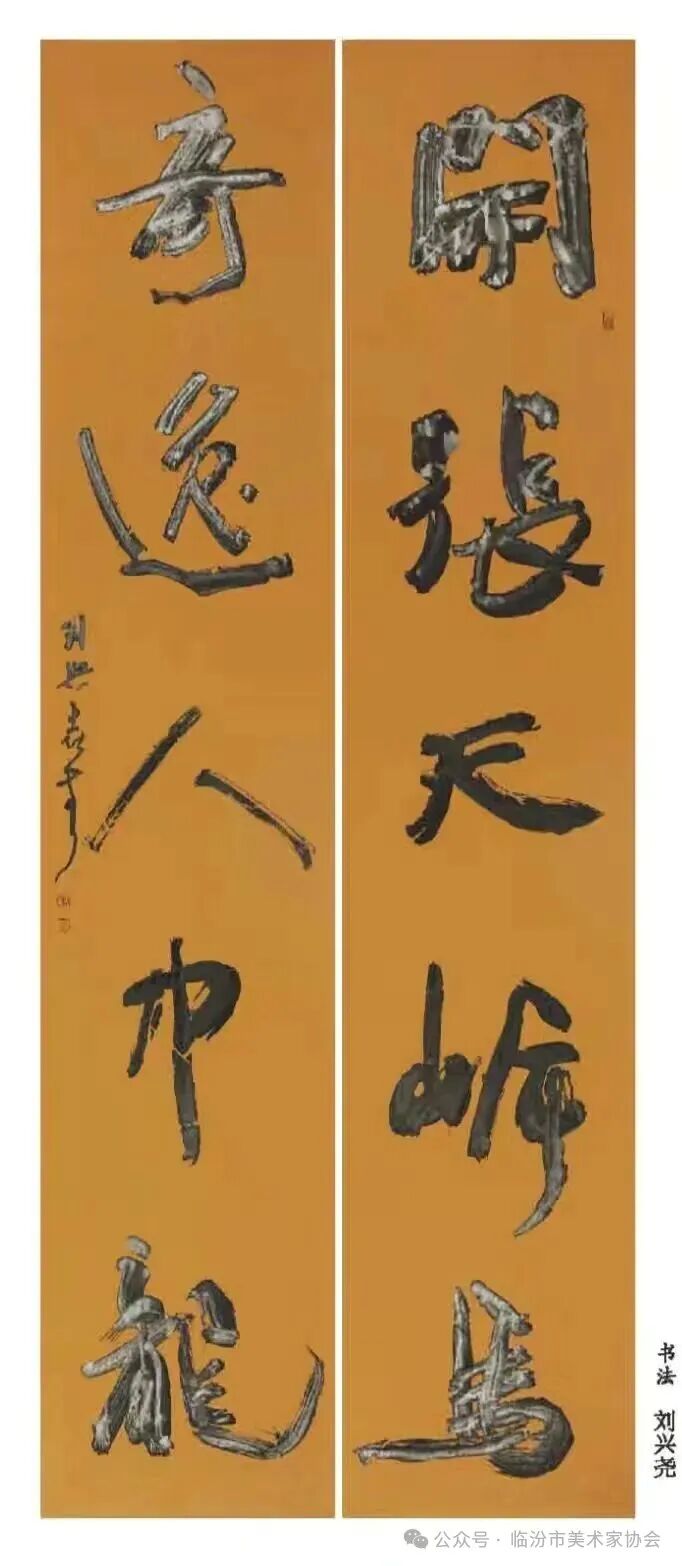 開張天岸馬
奇逸人中龍
刘兴尧书
书法 刘兴尧
公众号·临汾市美术家协会